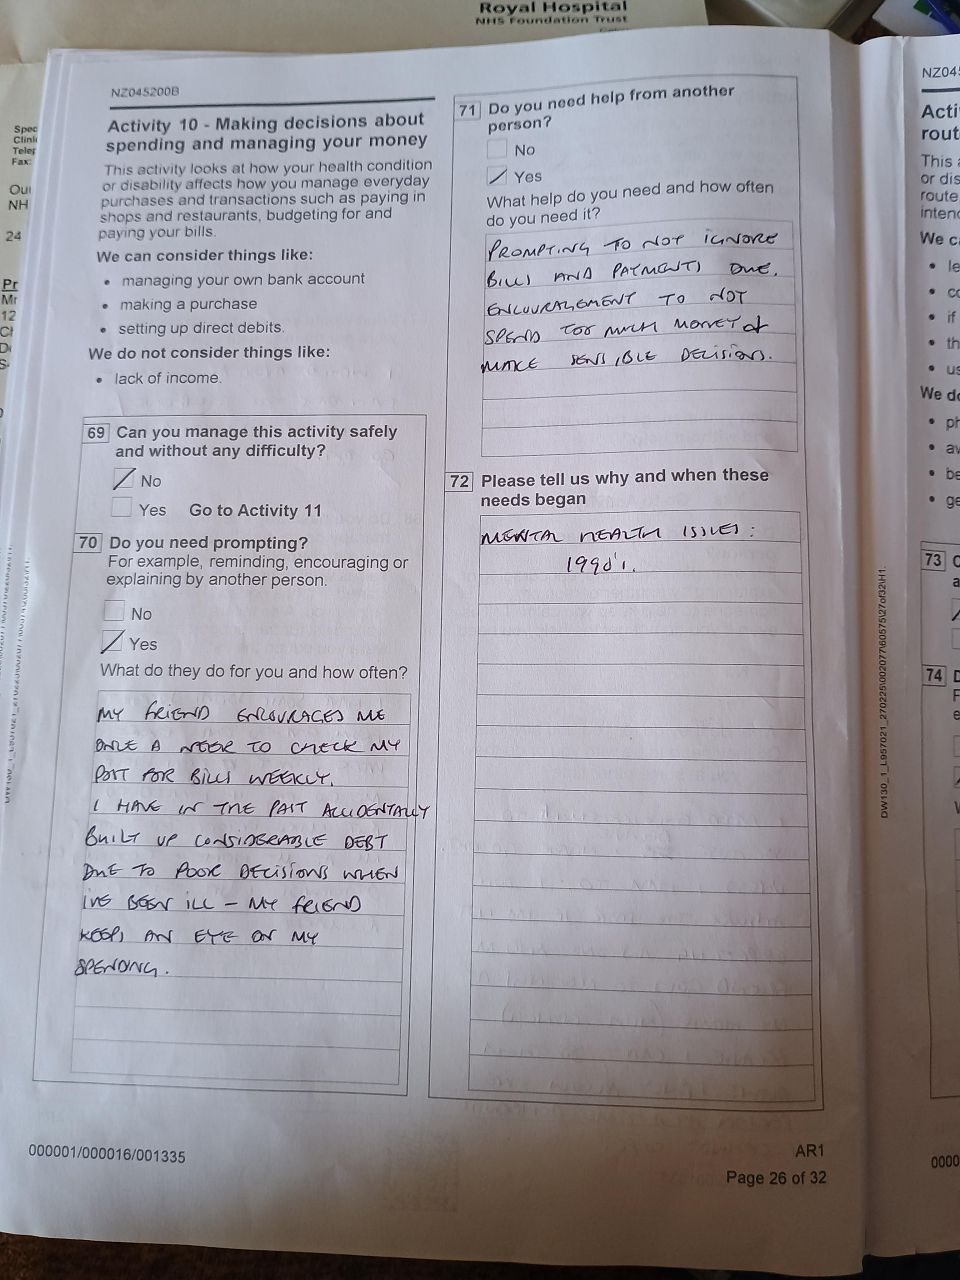 Royal Hospital
NHS Foundation Trust
NZ045200B
Activity 10 - Making decisions about
spending and managing your money
This activity looks at how your health condition
or disability affects how you manage everyday
purchases and transactions such as paying in
shops and restaurants, budgeting for and
paying your bills.
We can consider things like:
• managing your own bank account
• making a purchase
• setting up direct debits.
We do not consider things like:
• lack of income.
69 Can you manage this activity safely
and without any difficulty?
No
Yes Go to Activity 11
70 Do you need prompting?
For example, reminding, encouraging or
explaining by another person.
No
Yes
What do they do for you and how often?
MY FRIEND ENCOURAGES ME
ONCE A WEEK TO CHECK MY
POST FOR BILLS WEEKLY.
I HAVE IN THE PAST ACCIDENTALLY
BUILT UP CONSIDERABLE DEBT
DUE TO POOR DECISIONS WHEN
IVE BEEN ILL - MY FRIEND
KEEPS AN EYE ON MY
SPENDING.
71 Do you need help from another
person?
No
Yes
What help do you need and how often
do you need it?
PROMPTING TO NOT IGNORE
BILLS AND PAYMENTS DUE.
ENCOURAGEMENT TO NOT
SPEND TOO MUCH MONEY &
MAKE SENSIBLE DECISIONS.
72 Please tell us why and when these
needs began
MENTAL HEALTH ISSUES:
1990's.
000001/000016/001335
AR1
Page 26 of 32
DW130_1_L957021_270225\002077\60575\27of32\H1.
NZ045
Acti
rout
This
or dis
route
intend
We c
We do
73
74
0000
Spec
Clini
Telep
Fax:
Our
NH
24
Pr
Mr
12